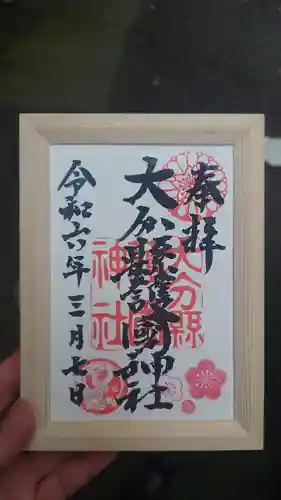 奉拝
大分縣護國神社
令和六年三月七日
大分縣
護國
神社